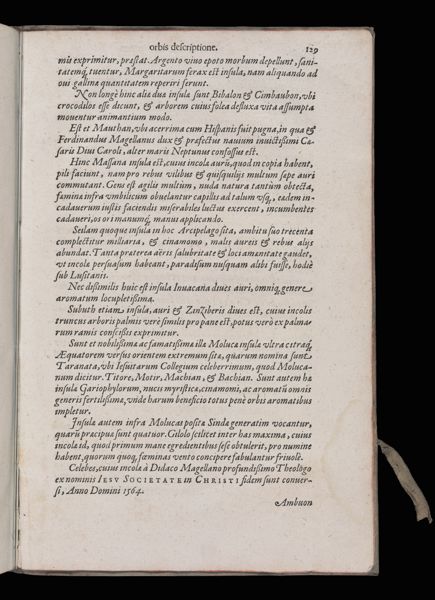 orbis descriptione. 129
mis exprimitur, præstat. Argento viuo epoto morbum depellunt, sani-
tatemq́; tuentur, Margaritarum ferax est insula, nam aliquando ad
oui gallinæ quantitatem reperiri ferunt.
Non longè hinc aliæ duæ insulæ sunt Bibalon & Cimbaubon, vbi
crocodilos esse dicunt, & arborem cuius folea defluxa vita assumpta
mouentur animantium modo.
Est et Mauthan, vbi acerrima cum Hispanis fuit pugna, in qua &
Ferdinandus Magellanus dux & præfectus nauium inuictißimi Cæ-
saris Diui Caroli, alter maris Neptunus confossus est.
Hinc Massana insula est, cuius incolæ aurū, quod in copia habent,
pili faciunt, nam pro rebus vilibus & quisquilijs multum sæpe auri
commutant. Gens est agilis multum, nuda natura tantùm obtecta,
fæmina infra vmbilicum obuelantur capillis ad talum vsq́;, eædem in-
cadauerum iustis faciendis miserabiles luctus exercent, incumbentes
cadaueri, os ori manumq́; manus applicando.
Seilam quoque insula in hoc Arcipelago sita, ambitu suo trecenta
complectitur milliaria, & cinamomo, malis aureis & rebus alijs
abundat. Tanta præterea aëris salubritate & loci amænitate gaudet,
vt incolæ persuasum habeant, paradisum nusquam alibi fuisse, hodiè
sub Lusitanis.
Nec dißimilis huic est insula Inuacana diues auri, omniq́; genere
aromatum locupletißima.
Subuth etiam insula, auri & Zinziberis diues est, cuius incolis
truncus arboris palmis verè similis pro pane est, potus verò ex palma-
rum ramis conscißis exprimitur.
Sunt et nobilißimæ ac famatißimæ illæ Molucæ insulæ vltra citraq́;
Æquatorem versus orientem extremum sitæ, quarum nomina sunt
Taranata, vbi Iesuitarum Collegium celeberrimum, quod Moluca-
num dicitur. Titore, Motir, Machian, & Bachian. Sunt autem hæ
insulæ Gariophylorum, nucis myristicæ, cinamomi, ac aromatū omnis
generis fertilißimæ, vnde harum beneficio totus penè orbis aromatibus
impletur.
Insulæ autem infra Molucas positæ Sindæ generatim vocantur,
quarū præcipuæ sunt quatuor. Gilolo scilicet inter has maxima, cuius
incolæ id, quod primum mane egredientibus sese obtulerit, pro numine
habent, quorum quoq́; fœminas vento concipere fabulantur friuolè.
Celebes, cuius incolæ à Didaco Magellano profundißimo Theologo
ex nominis IESV SOCIETATE in CHRISTI fidem sunt conuer-
si, Anno Domini 1564.
Ambuon